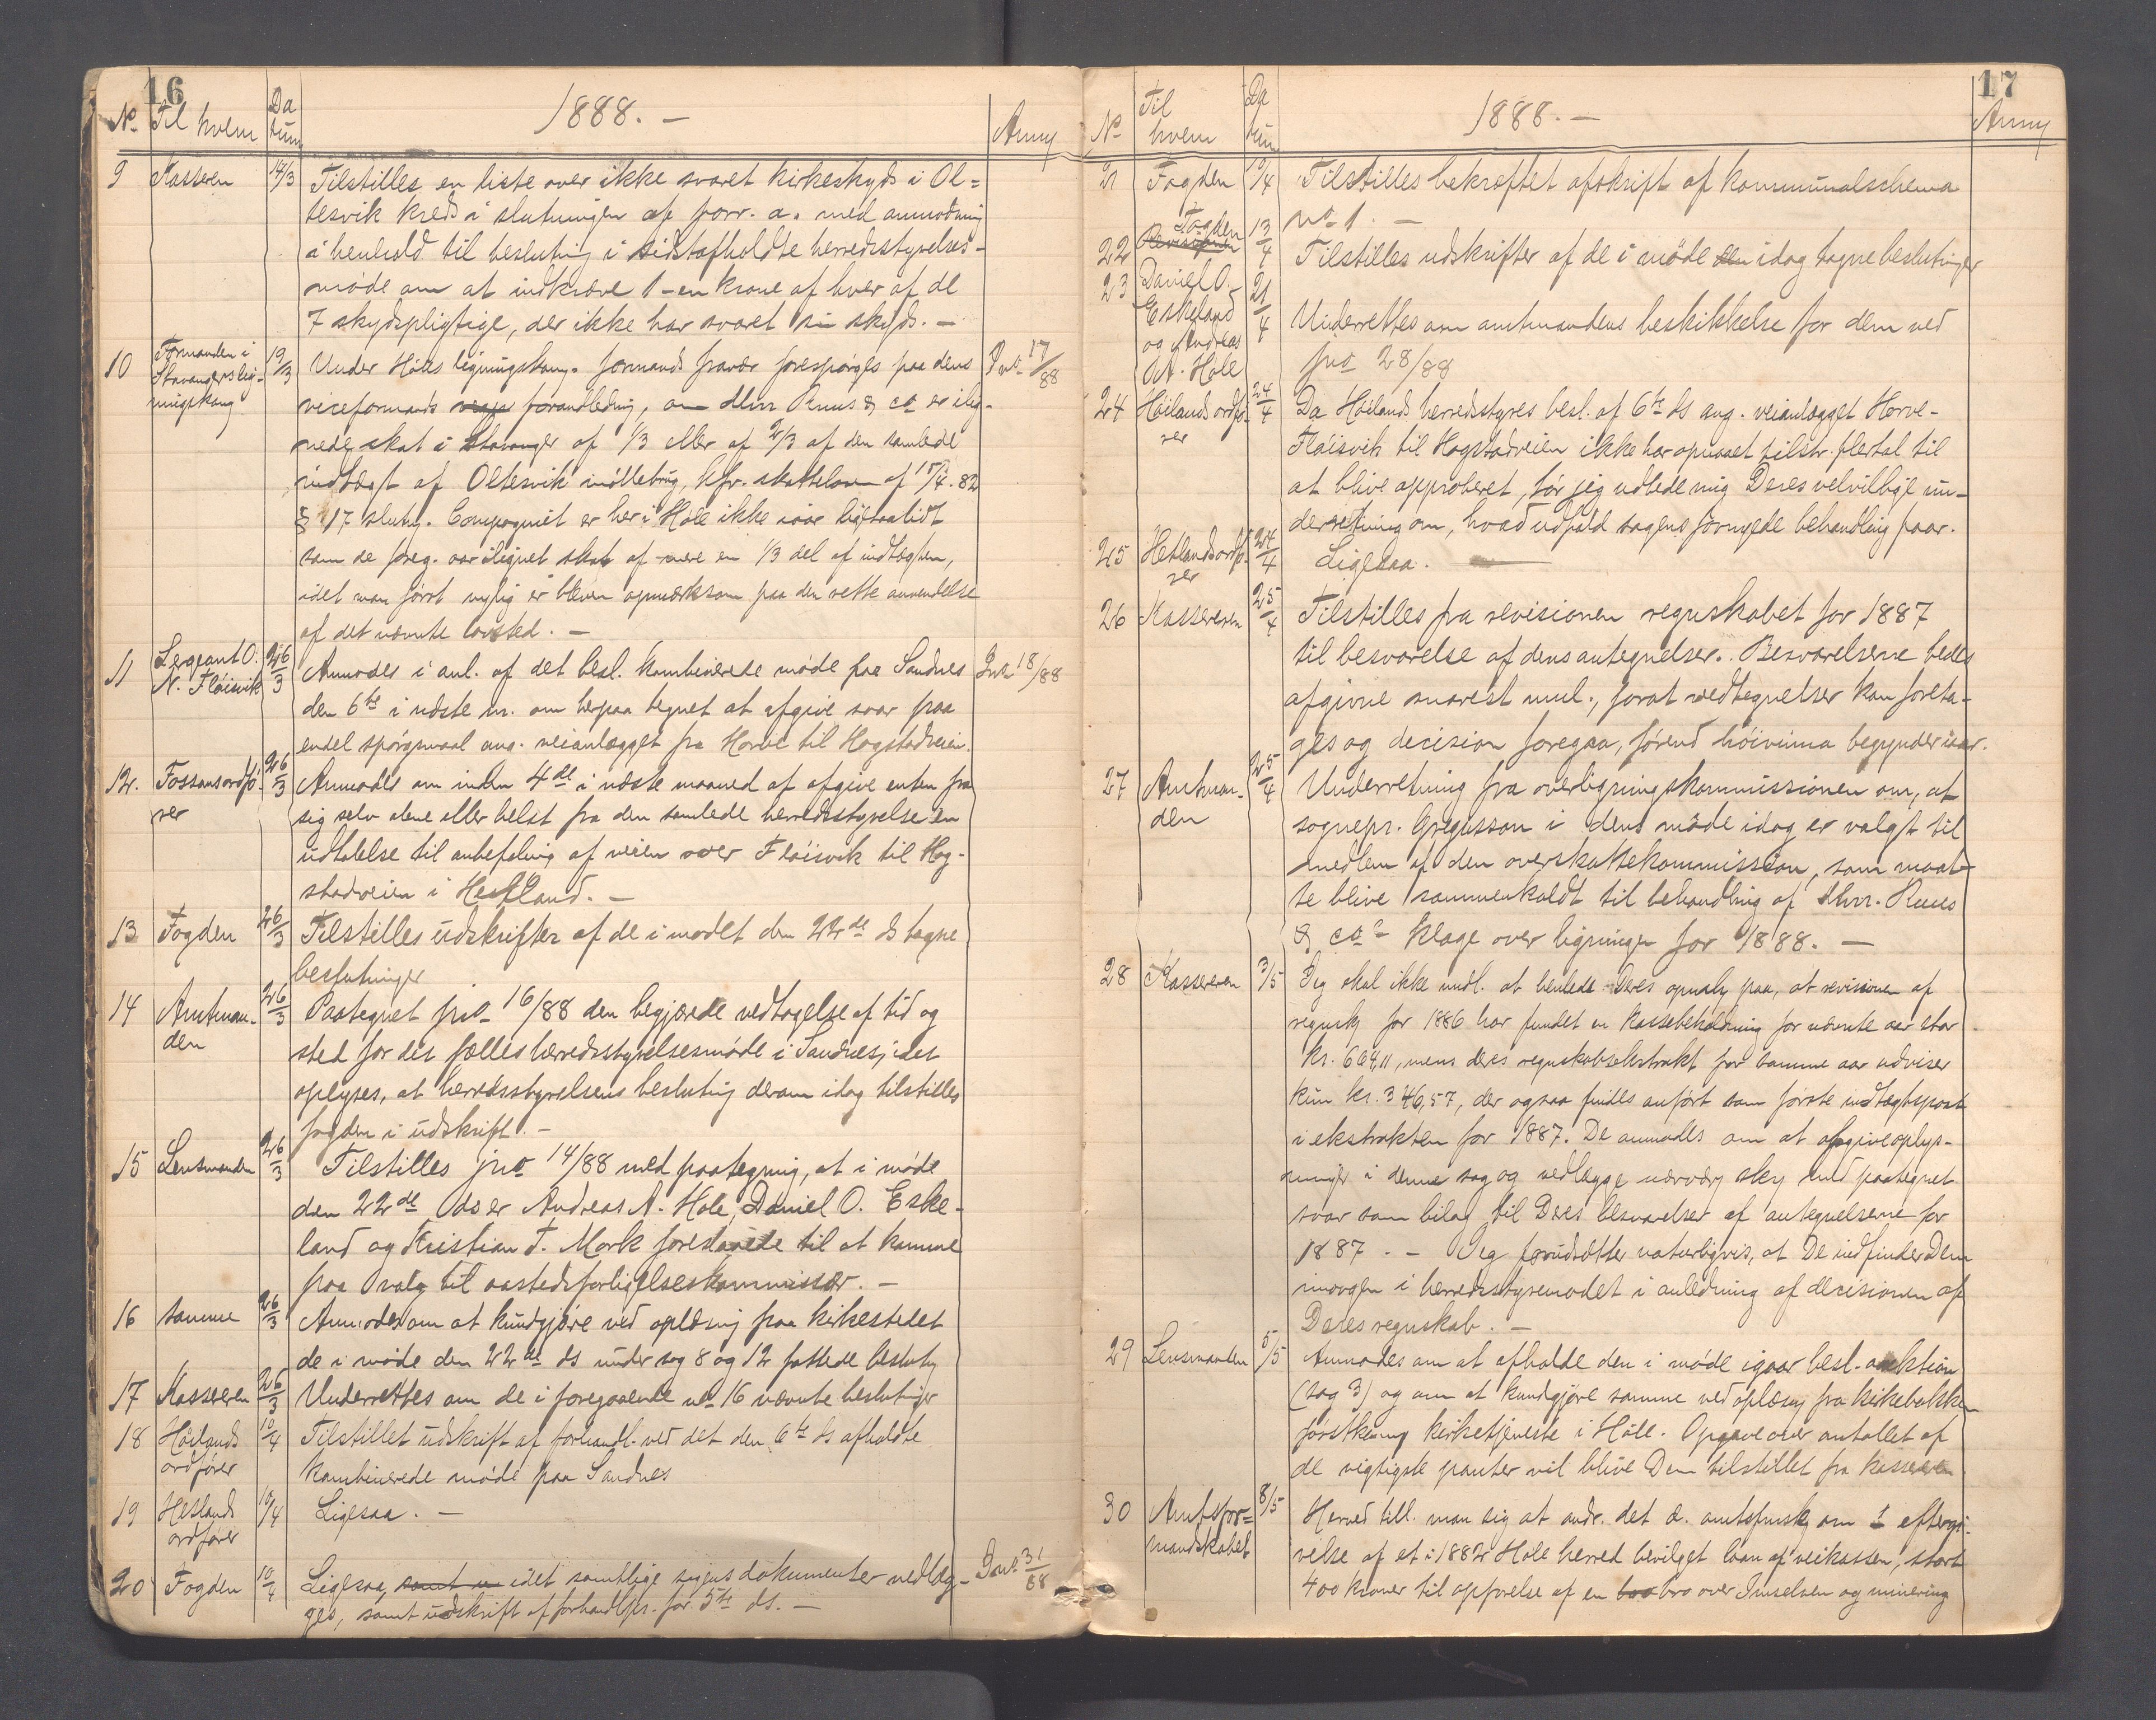 16
1888. –
No Til hvem Datum Anm
9 Kasseren 14/3 Tilstilles en liste over ikke svaret kirkeskyds i Ol=
tesvik kreds i slutningen af forr. a. med anmodning
i henhold til beslutning i sidstafholdte herredsstyrelses-
møde om at indkræve 1 - en krone af hver af de
7 skydspligtige, der ikke har svaret sin skyds. –
10 Formanden i Stavangers lig-
ningskom. 19/3 Under Høles ligningskom. formands fravær forespørges paa dens Jno 17/88
viceformands foranledning, om dhrr Ruus & co er ilig-
nede skat i Stavanger af 1/3 eller af 2/3 af den samlede
indtægt af Oltesvik møllebrug, kfr. skatteloven af 15/4. 82
§ 17 slutn. Compagniet er her i Høle ikke iaar ligesaalidt
som de foreg. aar ilignet skat af mere en 1/3 del af indtægten,
idet man først nylig er bleven opmærksom paa den rette anvendelse
af det nævnte lovsted. –
11 Sergeant O.
N. Fløisvik 26/3 Anmodes i anl. af det besl. kombinerede møde paa Sandnes Jno 18/88
den 6te i næste m. om herpaa tegnet at afgive svar paa
endel spørgsmaal ang. veianlægget fra Horve til Hogstadveien.
12. Fossans ordfø-
rer 26/3 Anmodes om inden 4de i næste maaned at afgive enten fra
sig selv alene eller helst fra den samlede herredsstyrelse en
udtalelse til anbefaling af veien over Fløisvik til Hog-
stadveien i Hetland. –
13 Fogden 26/3 Tilstilles udskrifter af de i mødet den 22de ds tagne
beslutninger
14 Amtman-
den 26/3 Paategnet jno 16/88 den begjærede vedtagelse af tid og
sted for det fælles herredsstyrelsesmøde i Sandnes, idet
oplyses, at herredsstyrelsens beslutning derom idag tilstilles
fogden i udskrift. –
15 Lensmanden 26/3 Tilstilles jno 14/88 med paategning, at i møde
den 22de ds er Andreas A. Hole, Daniel O. Eske-
land og Kristian T. Mork foreslaaede til at komme
paa valg til aastedsforligelseskommissær. –
16 samme 26/3 Anmodes om at kundgjøre ved oplæsning paa kirkestedet
de i møde den 22de ds under sag 8 og 12 fattede beslutn.
17 Kassereren 26/3 Underrettes om de i foregaaende no 16 nævnte beslutninger
18 Høilands
ordfører 10/4 Tilstillet udskrift af forhandl. ved det den 6te ds afholdte
kombinerede møde paa Sandnes
19 Hetlands
ordfører 10/4 Ligesaa. –
20 Fogden 10/4 Ligesaa, samt idet samtlige sagens dokumenter vedlæg- Jno 31/88
ges, samt udskrift af forhandlgs. for 5te ds. –
17
1888. –
No Til hvem Datum Anm
21 Fogden 10/4 Tilstilles bekræftet afskrift af kommunalschema
no 1. –
22 Revisoren Fogden 13/4 Tilstilles udskrifter af de i møde den idag tagne beslutninger
23 Daniel O.
Eskeland
og Andreas
A. Hole 21/4 Underrettes om amtmandens beskikkelse for dem ved
jno 28/88
24 Høilands ordfø-
rer 24/4 Da Høilands herredsstyres besl. af 6te ds ang. veianlægget Horve-
Fløisvik til Hogstadveien ikke har opnaaet tilstr. flertal til
at blive approberet, tør jeg udbede mig Deres velvillige un-
derretning om, hvad udfald sagens fornyede behandling faar.
25 Hetlands ordfø-
rer 24/4 Ligesaa. –
26 Kassereren 25/4 Tilstilles fra revisionen regnskabet for 1887
til besvarelse af dens antegnelser. Besvarelserne bedes
afgivne snarest mul., forat vedtegnelser kan foreta-
ges og decision foregaa, førend høivinna begynder iaar.
27 Amtman-
den 25/4 Underretning fra overligningskommissionen om, at
sognepr. Gregusson i dens møde idag er valgt til
medlem af den overskattekommission, som maat-
te blive sammenkaldt til behandling af dhrr. Ruus
& co's klage over ligningen for 1888. –
28 Kassereren 3/5 Jeg skal ikke undl. at henlede Deres opmærk. paa, at revisionen af
regnsk. for 1886 har fundet en kassebeholdning for nævnte aar stor
kr. 664,11, mens deres regnskabsekstrakt for samme aar udviser
kun kr. 346,57, der ogsaa findes anført som første indtægtspost
i ekstrakten for 1887. De anmodes om at afgive oplys-
ninger i denne sag og vedlægge nærvær. skr. med paategnet
svar som bilag til Deres besvarelser af antegnelserne for
1887. – Jeg forudsætter naturligvis, at De indfinder Dem
imorgen i herredsstyremødet i anledning af decisionen af
Deres regnskab. –
29 Lensmanden 5/5 Anmodes om at afholde den i møde igaar besl. auktion
(sag 3) og om at kundgjøre samme ved oplæsn. fra kirkebakken
førstkomm. kirketjeneste i Høle. Opgave over antallet af
de vigtigste panter vil blive Dem tilstillet fra kassereren
30 Amtsfor=
mandskabet 8/5 Herved till. man sig at andr. det ø. amtsformsk. om eftergi-
velse af et i 1882 Høle herred bevilget laan af veikassen, stort
400 kroner til opførelse af en bro over Imselven og minering